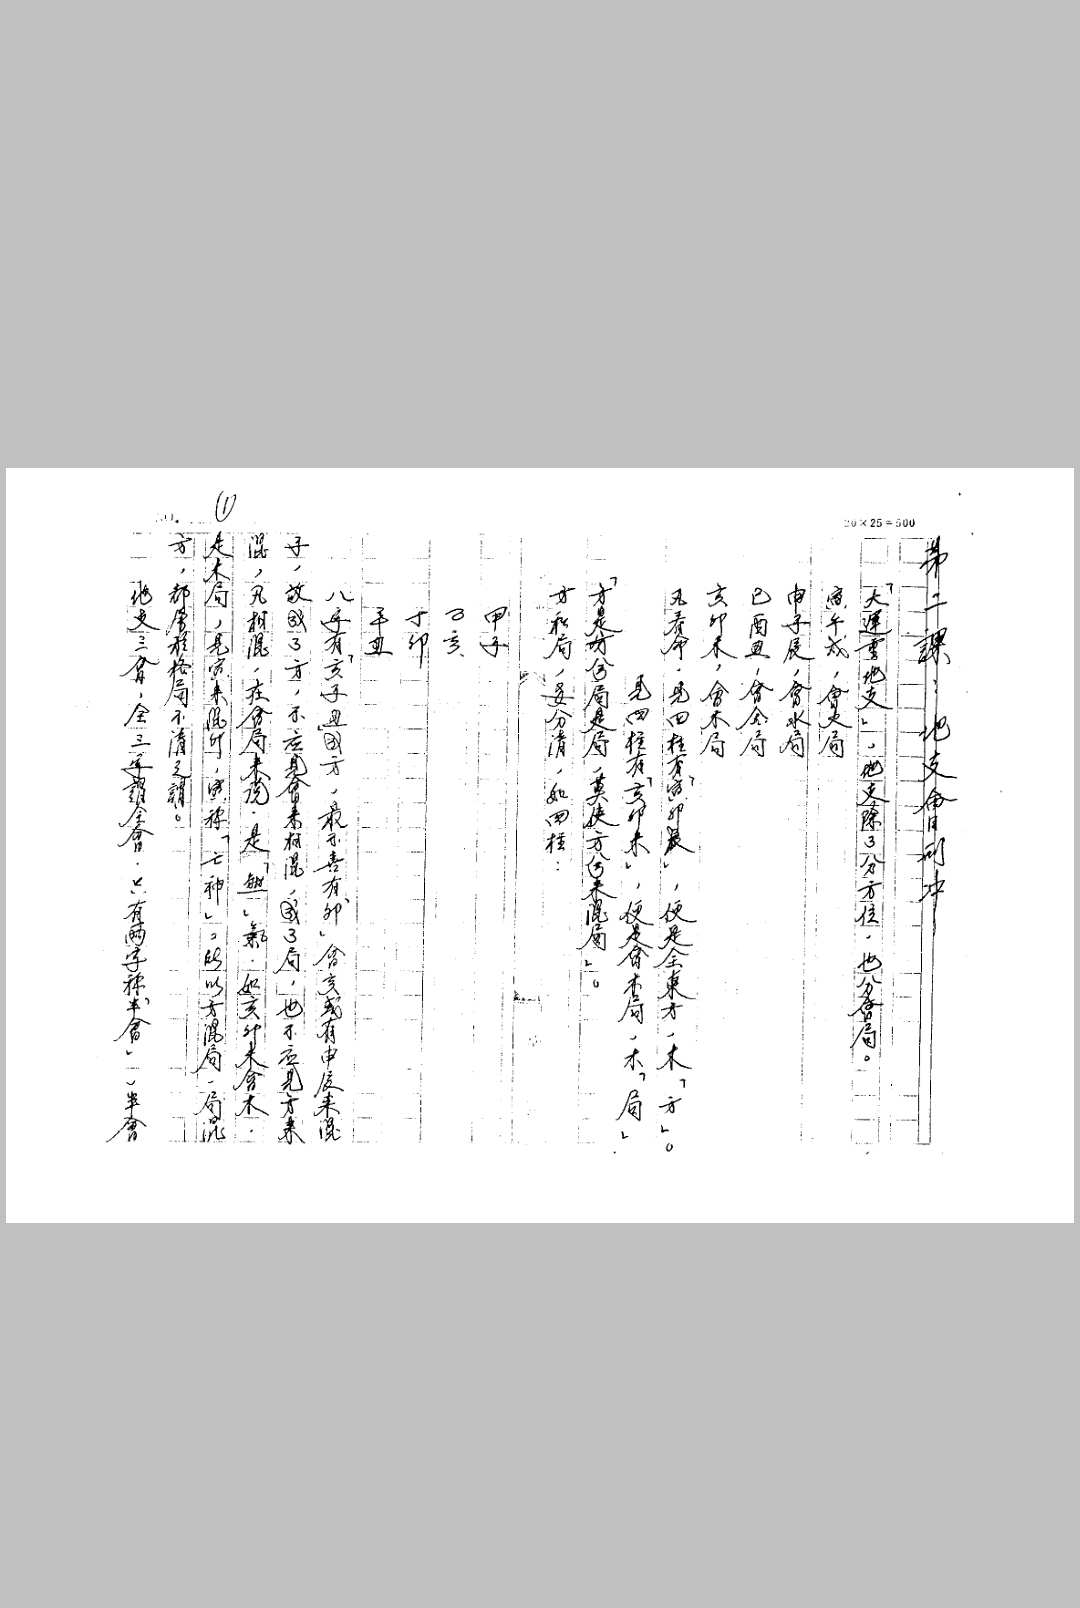 20×25=500
第二課：地支會刑冲
「大運重地支」，地支除了分方位，也分會局。
寅午戌，會火局
申子辰，會水局
巳酉丑，會金局
亥卯未，會木局
凡看命，見四柱有「寅卯辰」，便是全東方，木「方」。
見四柱有「亥卯未」，便是會木局，木「局」
「方是方兮局是局，莫使方兮來混局」。
方和局，要分清，如四柱：
甲子
乙亥
丁卯
辛丑
八字有「亥子丑」成方，最不喜有「卯」會亥或有申辰來混
子，故成了方，不應見會來相混，成了局，也不應見方來
混，凡相混，在會局來說，是「」氣，如亥卯未會木，
是木局，見寅來混卯，寅稱「亡神」。所以方混局，局混
方，都屬於格局不清之謂。
地支三會，全三字謂全會，只有兩字稱「半會」，半會
①